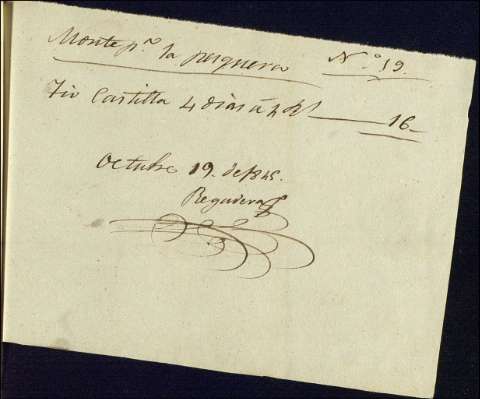 Monte p.ª la pesquera N.º 19.
Tio Castilla 4 dias á 4 Rs 16
Octubre 19. de 1845.
Reguera